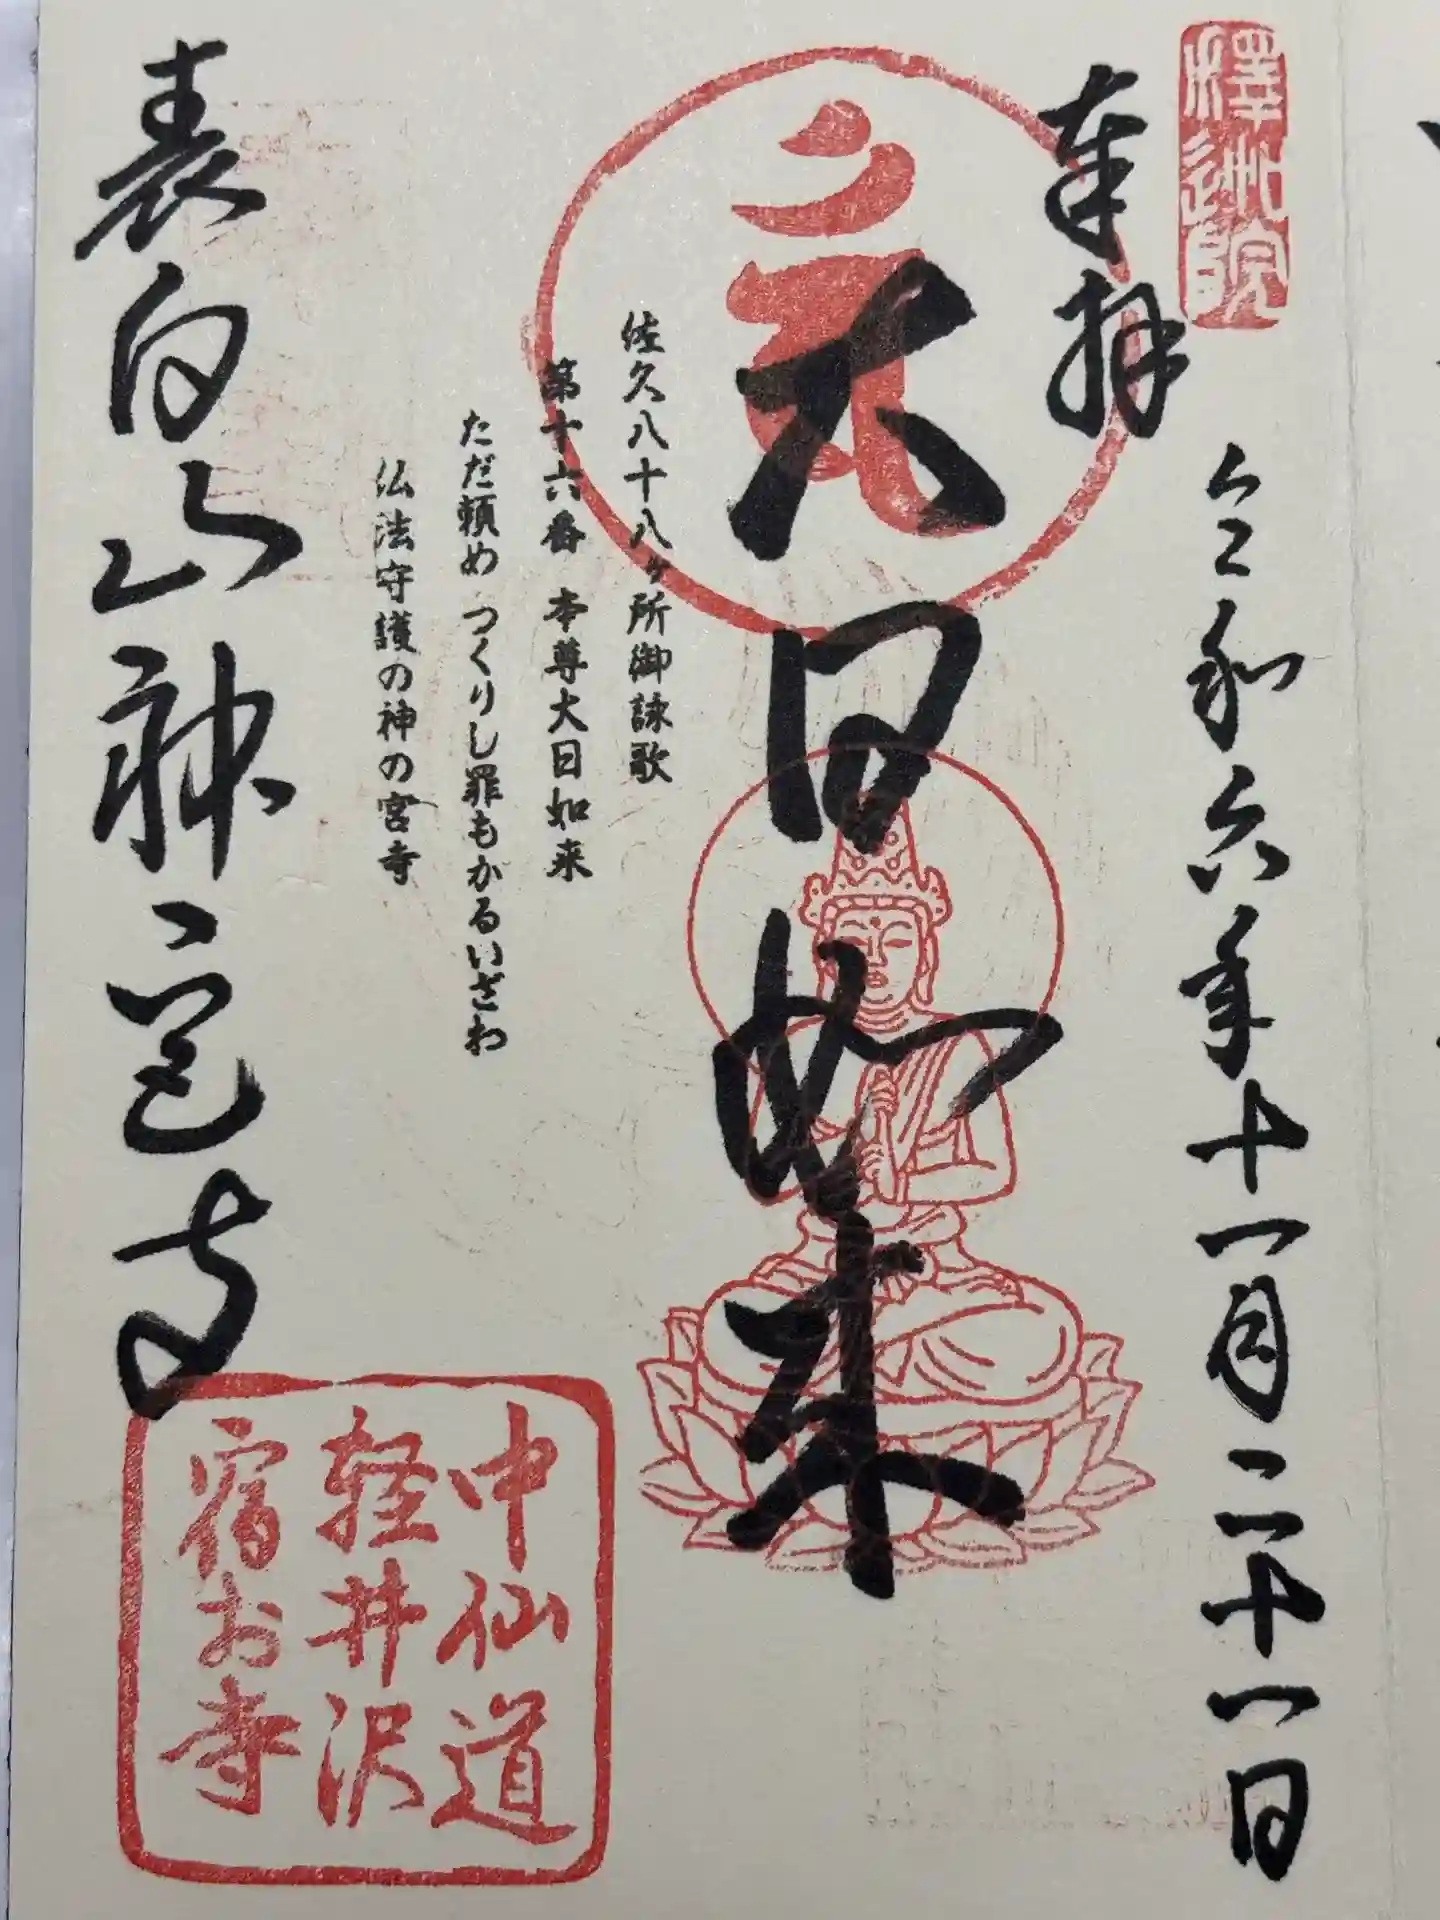 釋迦院
奉拝
令和六年十一月二十一日
大日如来
佐久八十八ヶ所御詠歌
第十六番 本尊大日如来
ただ頼め つくりし罪もかるいざわ
仏法守護の神の宮寺
表白山神宮寺
中仙道
軽井沢
宿お寺